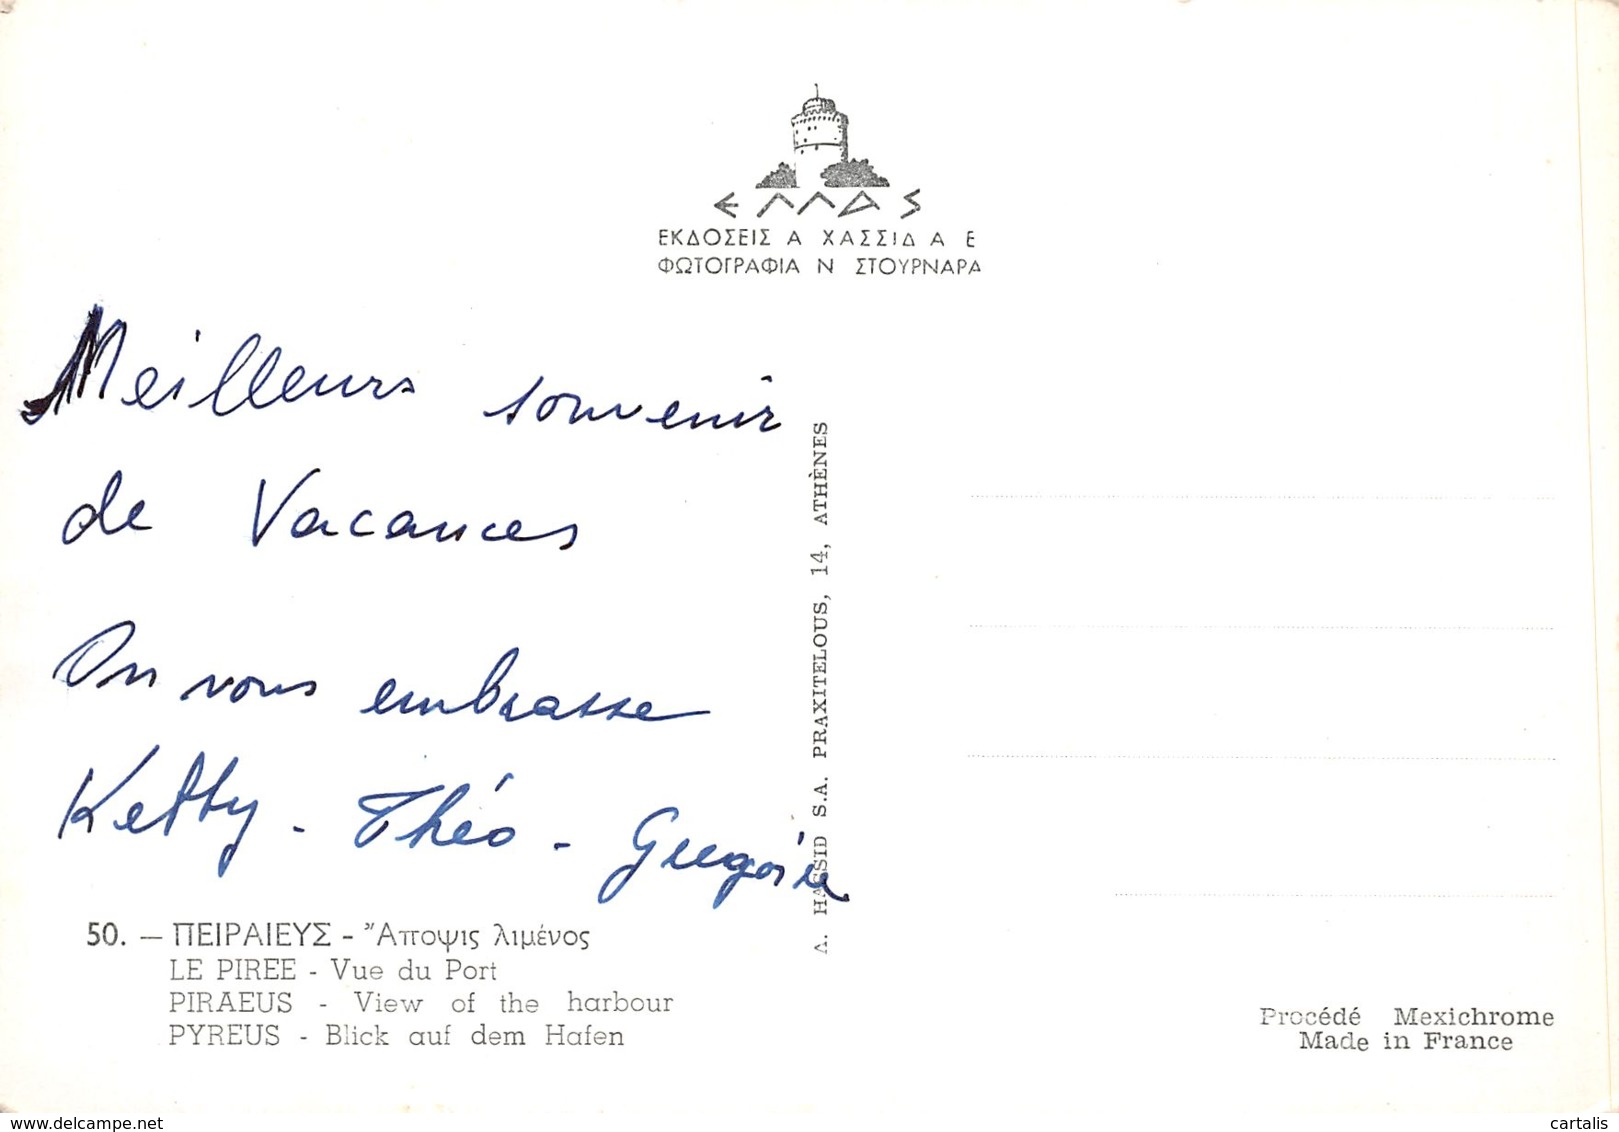 ΕΛΛΑΣ
ΕΚΔΟΣΕΙΣ Α ΧΑΣΣΙΔ Α Ε
ΦΩΤΟΓΡΑΦΙΑ Ν ΣΤΟΥΡΝΑΡΑ
Meilleurs souvenir
de Vacances
On vous embrasse
Ketty - Théo - Grégoire
50. — ΠΕΙΡΑΙΕΥΣ - Ἄποψις λιμένος
LE PIREE - Vue du Port
PIRAEUS - View of the harbour
PYREUS - Blick auf dem Hafen
Δ. HASSID S.A. PRAXITELOUS, 14, ATHÈNES
Procédé Mexichrome
Made in France
delcampe.net
cartalis